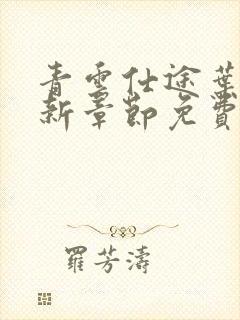 青雲仕途葉
新章節免費
羅芳濤